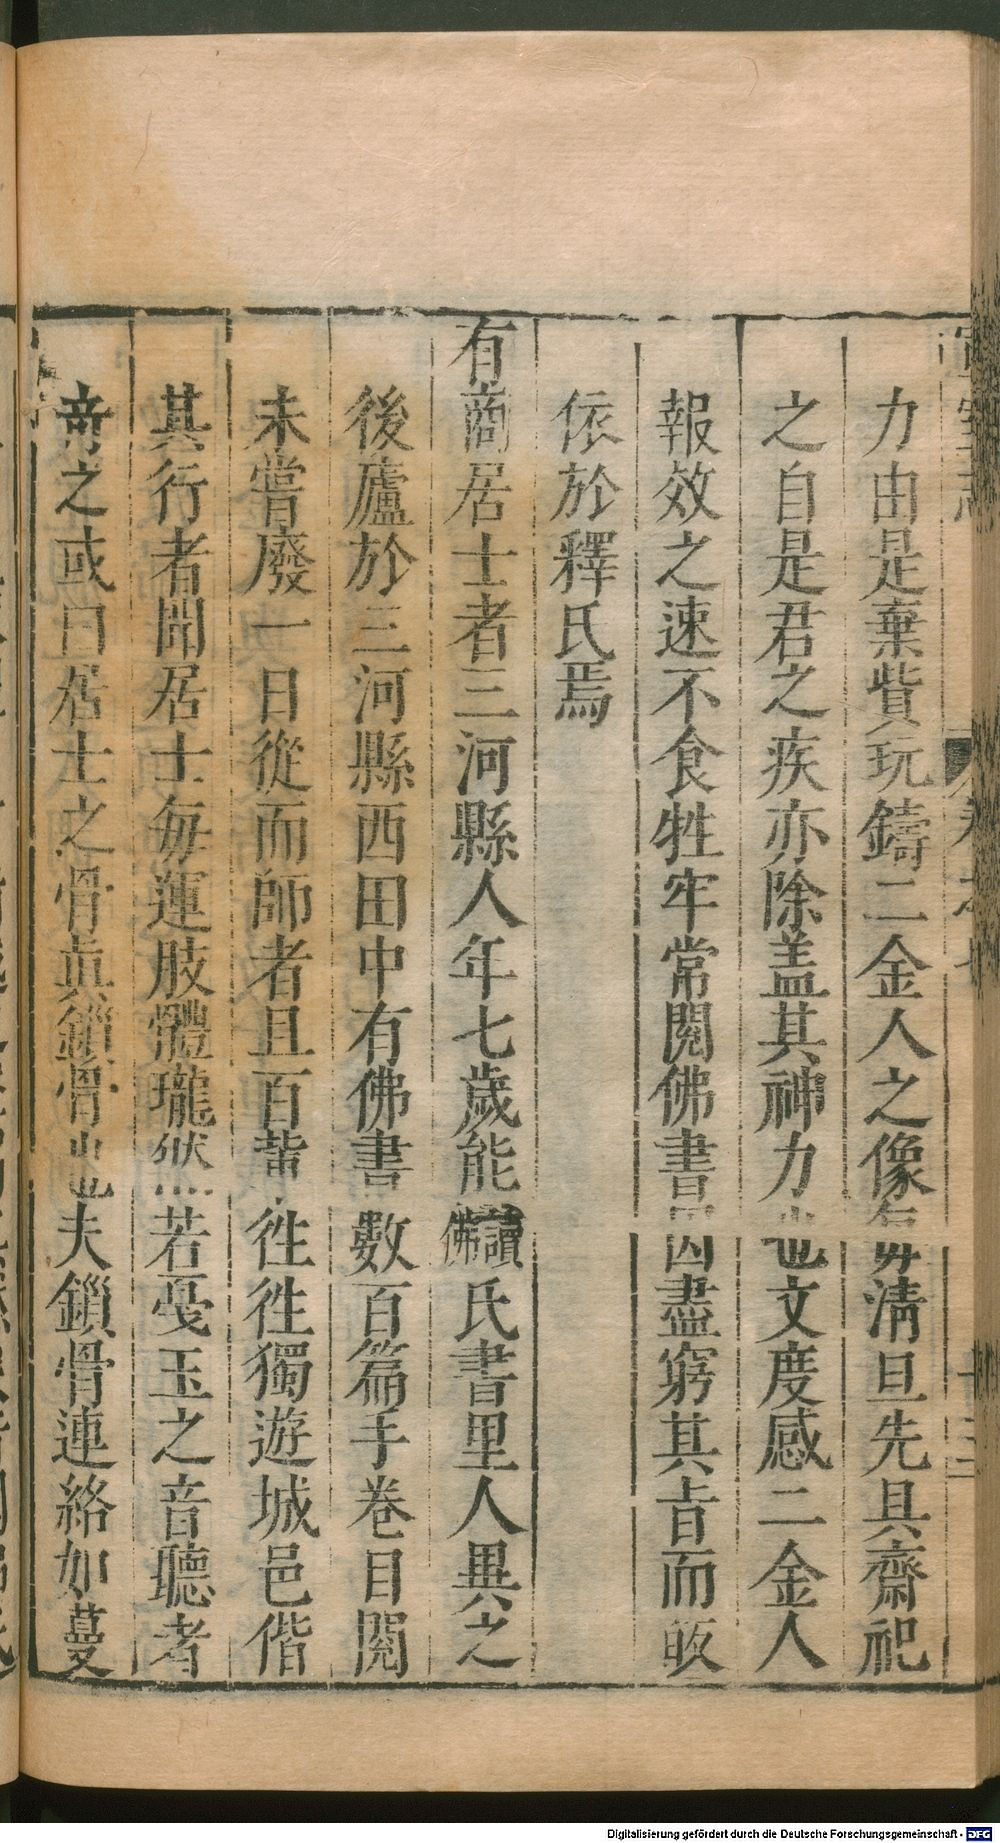 力由是棄貲玩鑄二金人之像每清旦先具齋祀
之自是君之疾亦除盖其神力也文度感二金人
報效之速不食牲牢常閱佛書因盡窮其㫖而皈
依於釋氏焉
有商居士者三河縣人年七歲能讀佛氏書里人異之
後廬於三河縣西田中有佛書數百篇手卷目閱
未嘗廢一日從而師者且百輩徃徃獨遊城邑偕
其行者聞居士每運肢體瓏然若戞玉之音聽者
竒之或曰居士之骨真鎻骨也夫鎻骨連絡如蔓
宣室志
卷之七
十三
Digitalisierung gefördert durch die Deutsche Forschungsgemeinschaft - DFG